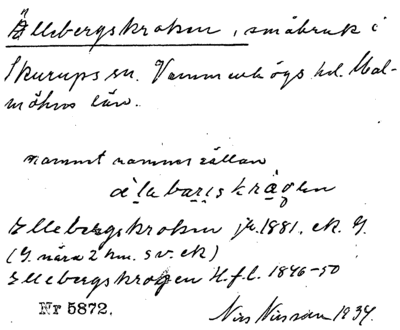 Ällebergskroken, småbruk i
Skurups sn. Vemmenhögs hd. Mal-
möhus län.
namnet numer sällan
Ellebergskroken jr. 1881. ek. G.
(G. nära 2 km. s.v. ek)
Ellebergskrogen H.f.l. 1846-50
Nr 5872.
Nils Nilsson 1934.